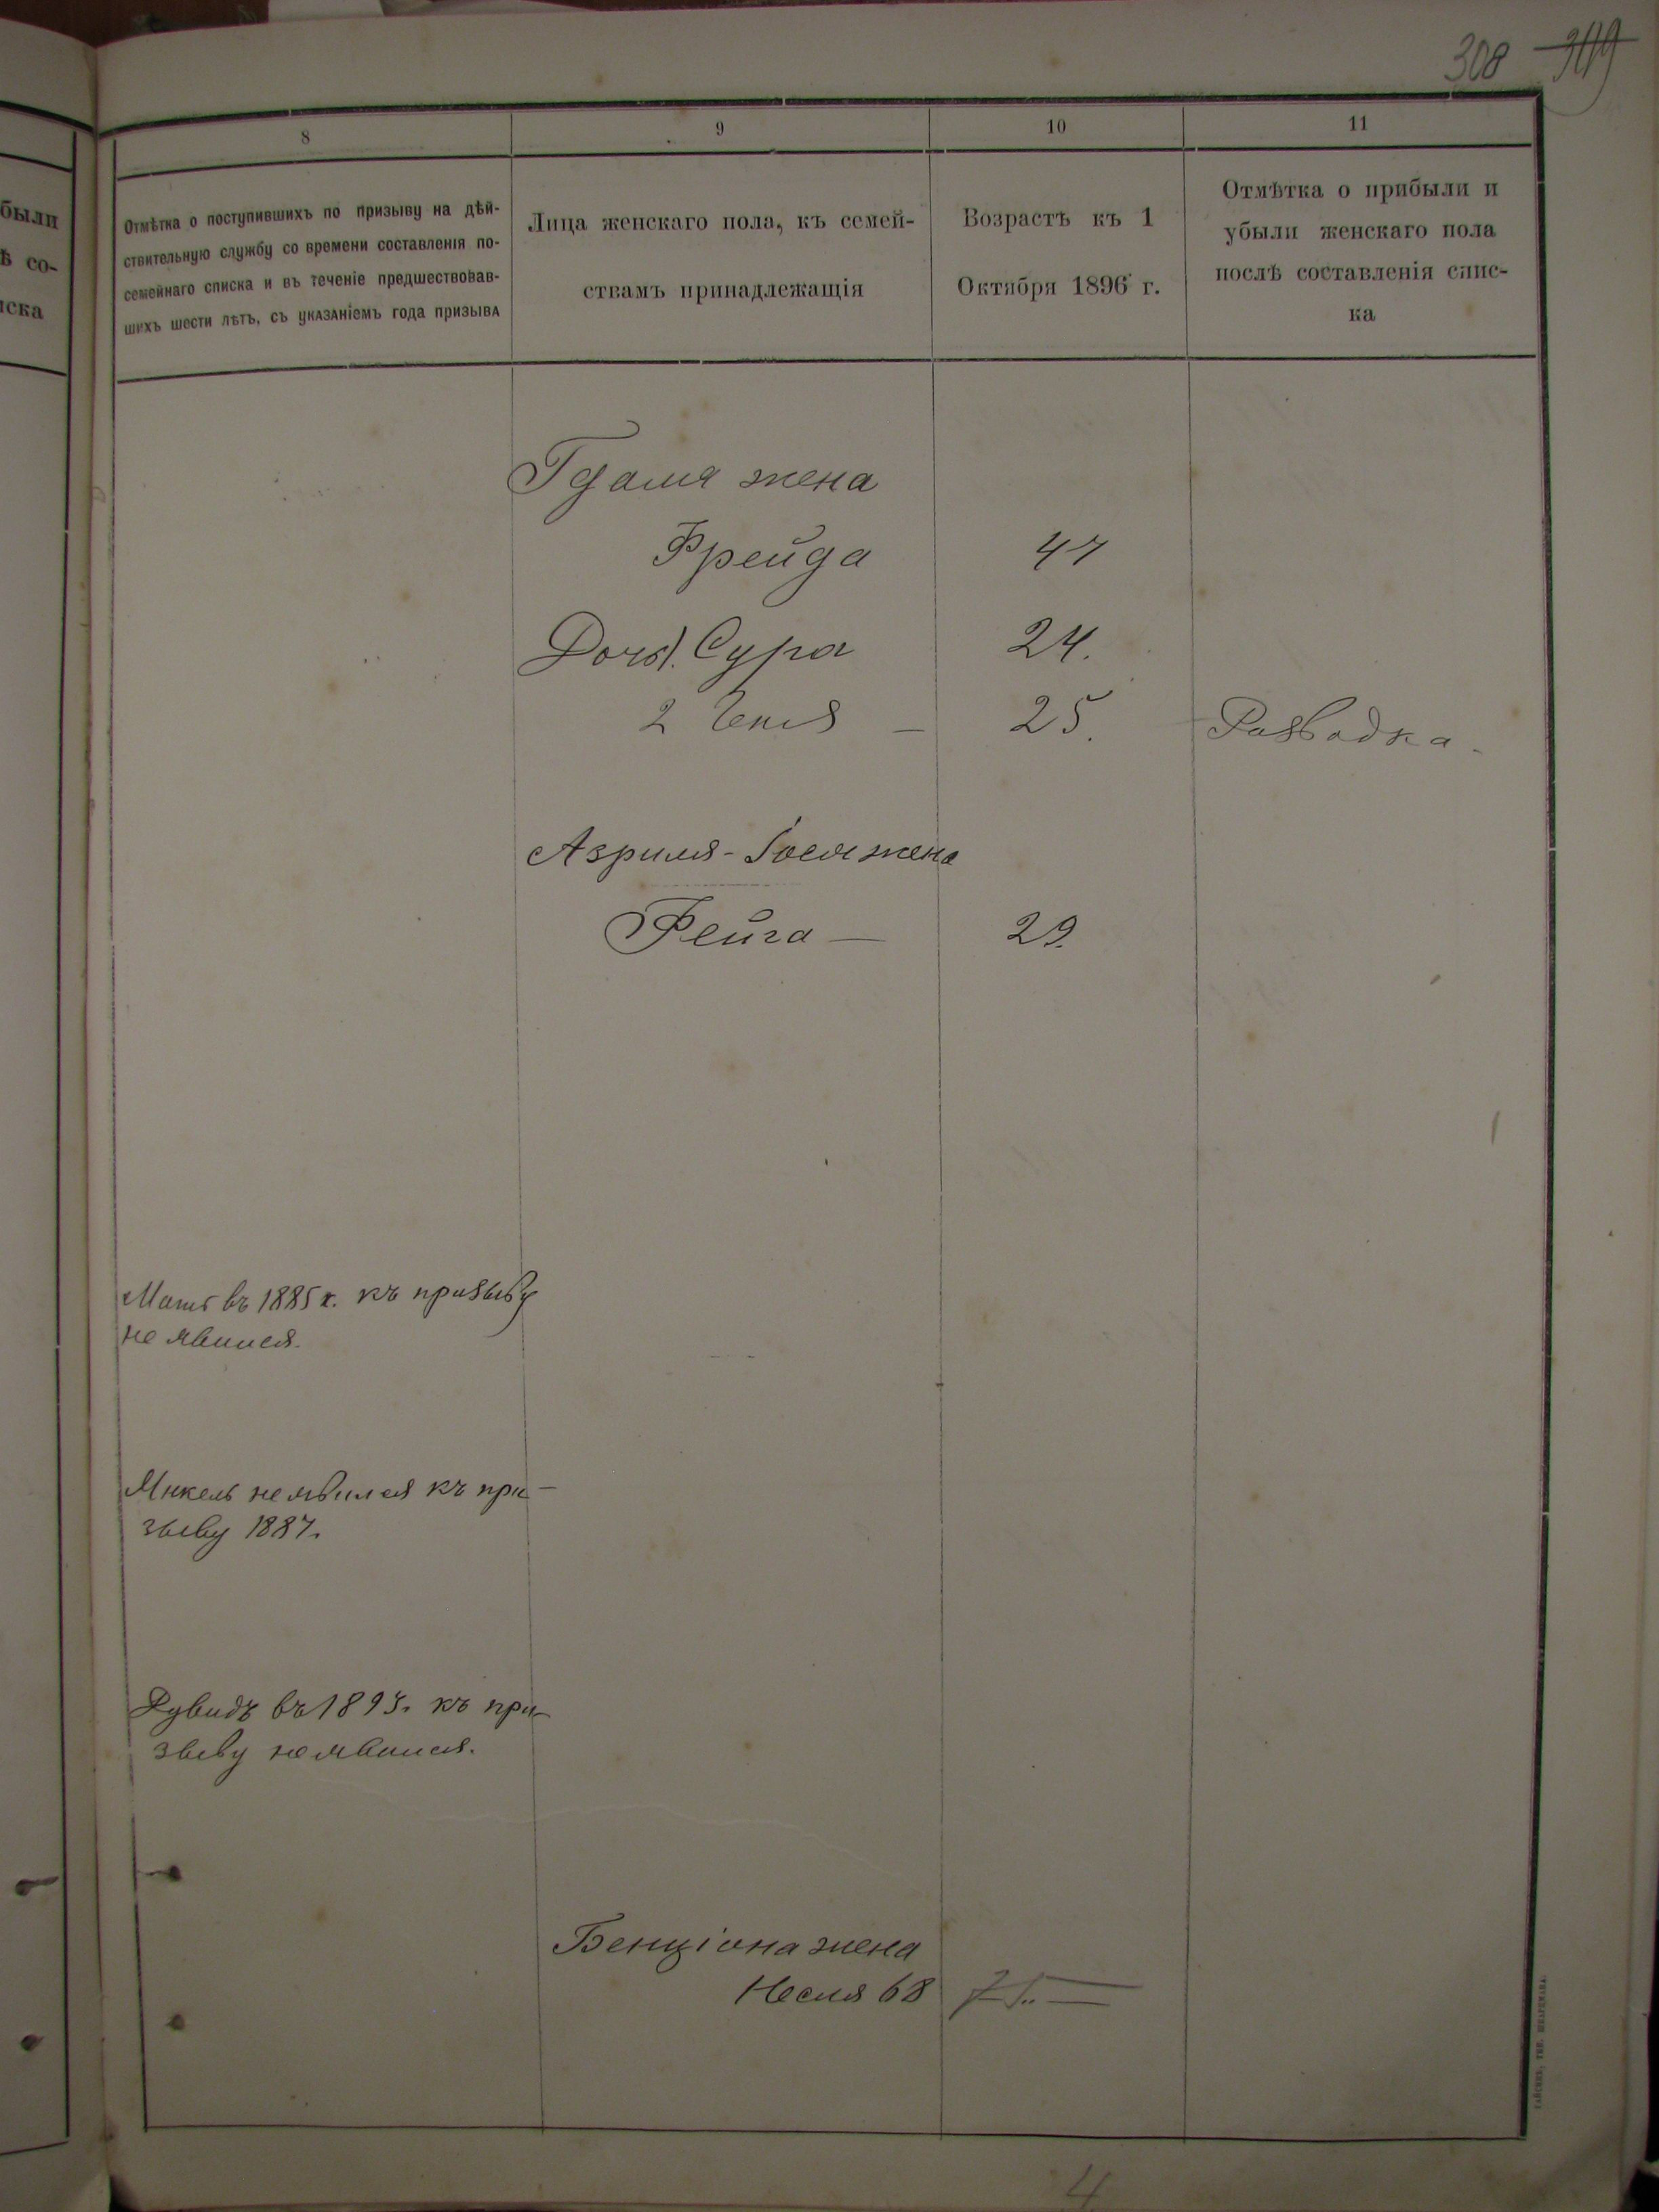 308 309
8 9 10 11
были
ѣ со-
иска
Отмѣтка о поступившихъ по призыву на дѣй-
ствительную службу со времени составленія по-
семейнаго списка и въ теченіе предшествовав-
шихъ шести лѣтъ, съ указаніемъ года призыва
Лица женскаго пола, къ семей-
ствамъ принадлежащія
Возрастъ къ 1
Октября 1896 г.
Отмѣтка о прибыли и
убыли женскаго пола
послѣ составленія спис-
ка
Гдаля жена
Фрейда 47
Дочь 1. Сура 24.
2 25. Разводка.
Азриля-Іосля жена
Фейга — 29.
въ 1885 г. къ призыву
не явился.
Янкель не явился къ при-
зыву 1887.
въ 1893. къ при-
зыву не явился.
Бенціона жена
Несля 68
4